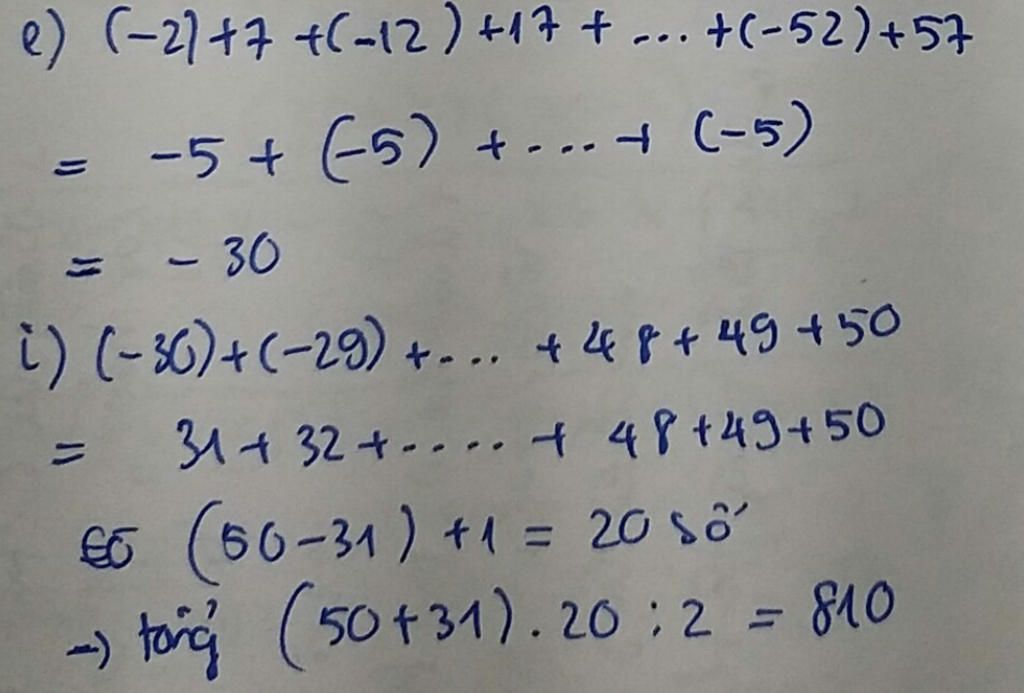 e) (-2)+7 +(-12)+17+ ... +(-52)+57
= -5 + (-5) + .... + (-5)
= - 30
i) (-30)+(-29) +.... + 48+ 49 +50
= 31+ 32 +..... + 48+49+50
có (50-31) +1 = 20 số
→ tổng (50+31). 20 : 2 = 810